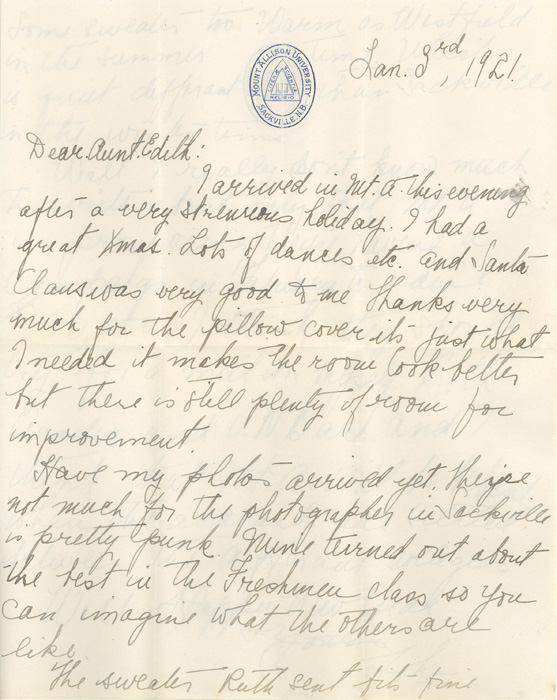 MOUNT ALLISON UNIVERSITY
SACKVILLE N.B.
RELIGIO
Jan. 3rd, 1921
Dear Aunt Edith:
I arrived in Mt. A. this evening
after a very strenuous holiday. I had a
great Xmas. Lots of dances etc. and Santa
Claus was very good to me Thanks very
much for the pillow cover its just what
I needed it makes the room look better
but there is still plenty of room for
improvement.
Have my photos arrived yet. They're
not much for the photographer in Sackville
is pretty punk. Mine turned out about
the best in the Freshmen class so you
can imagine what the others are
like.
The sweater Ruth sent fits fine